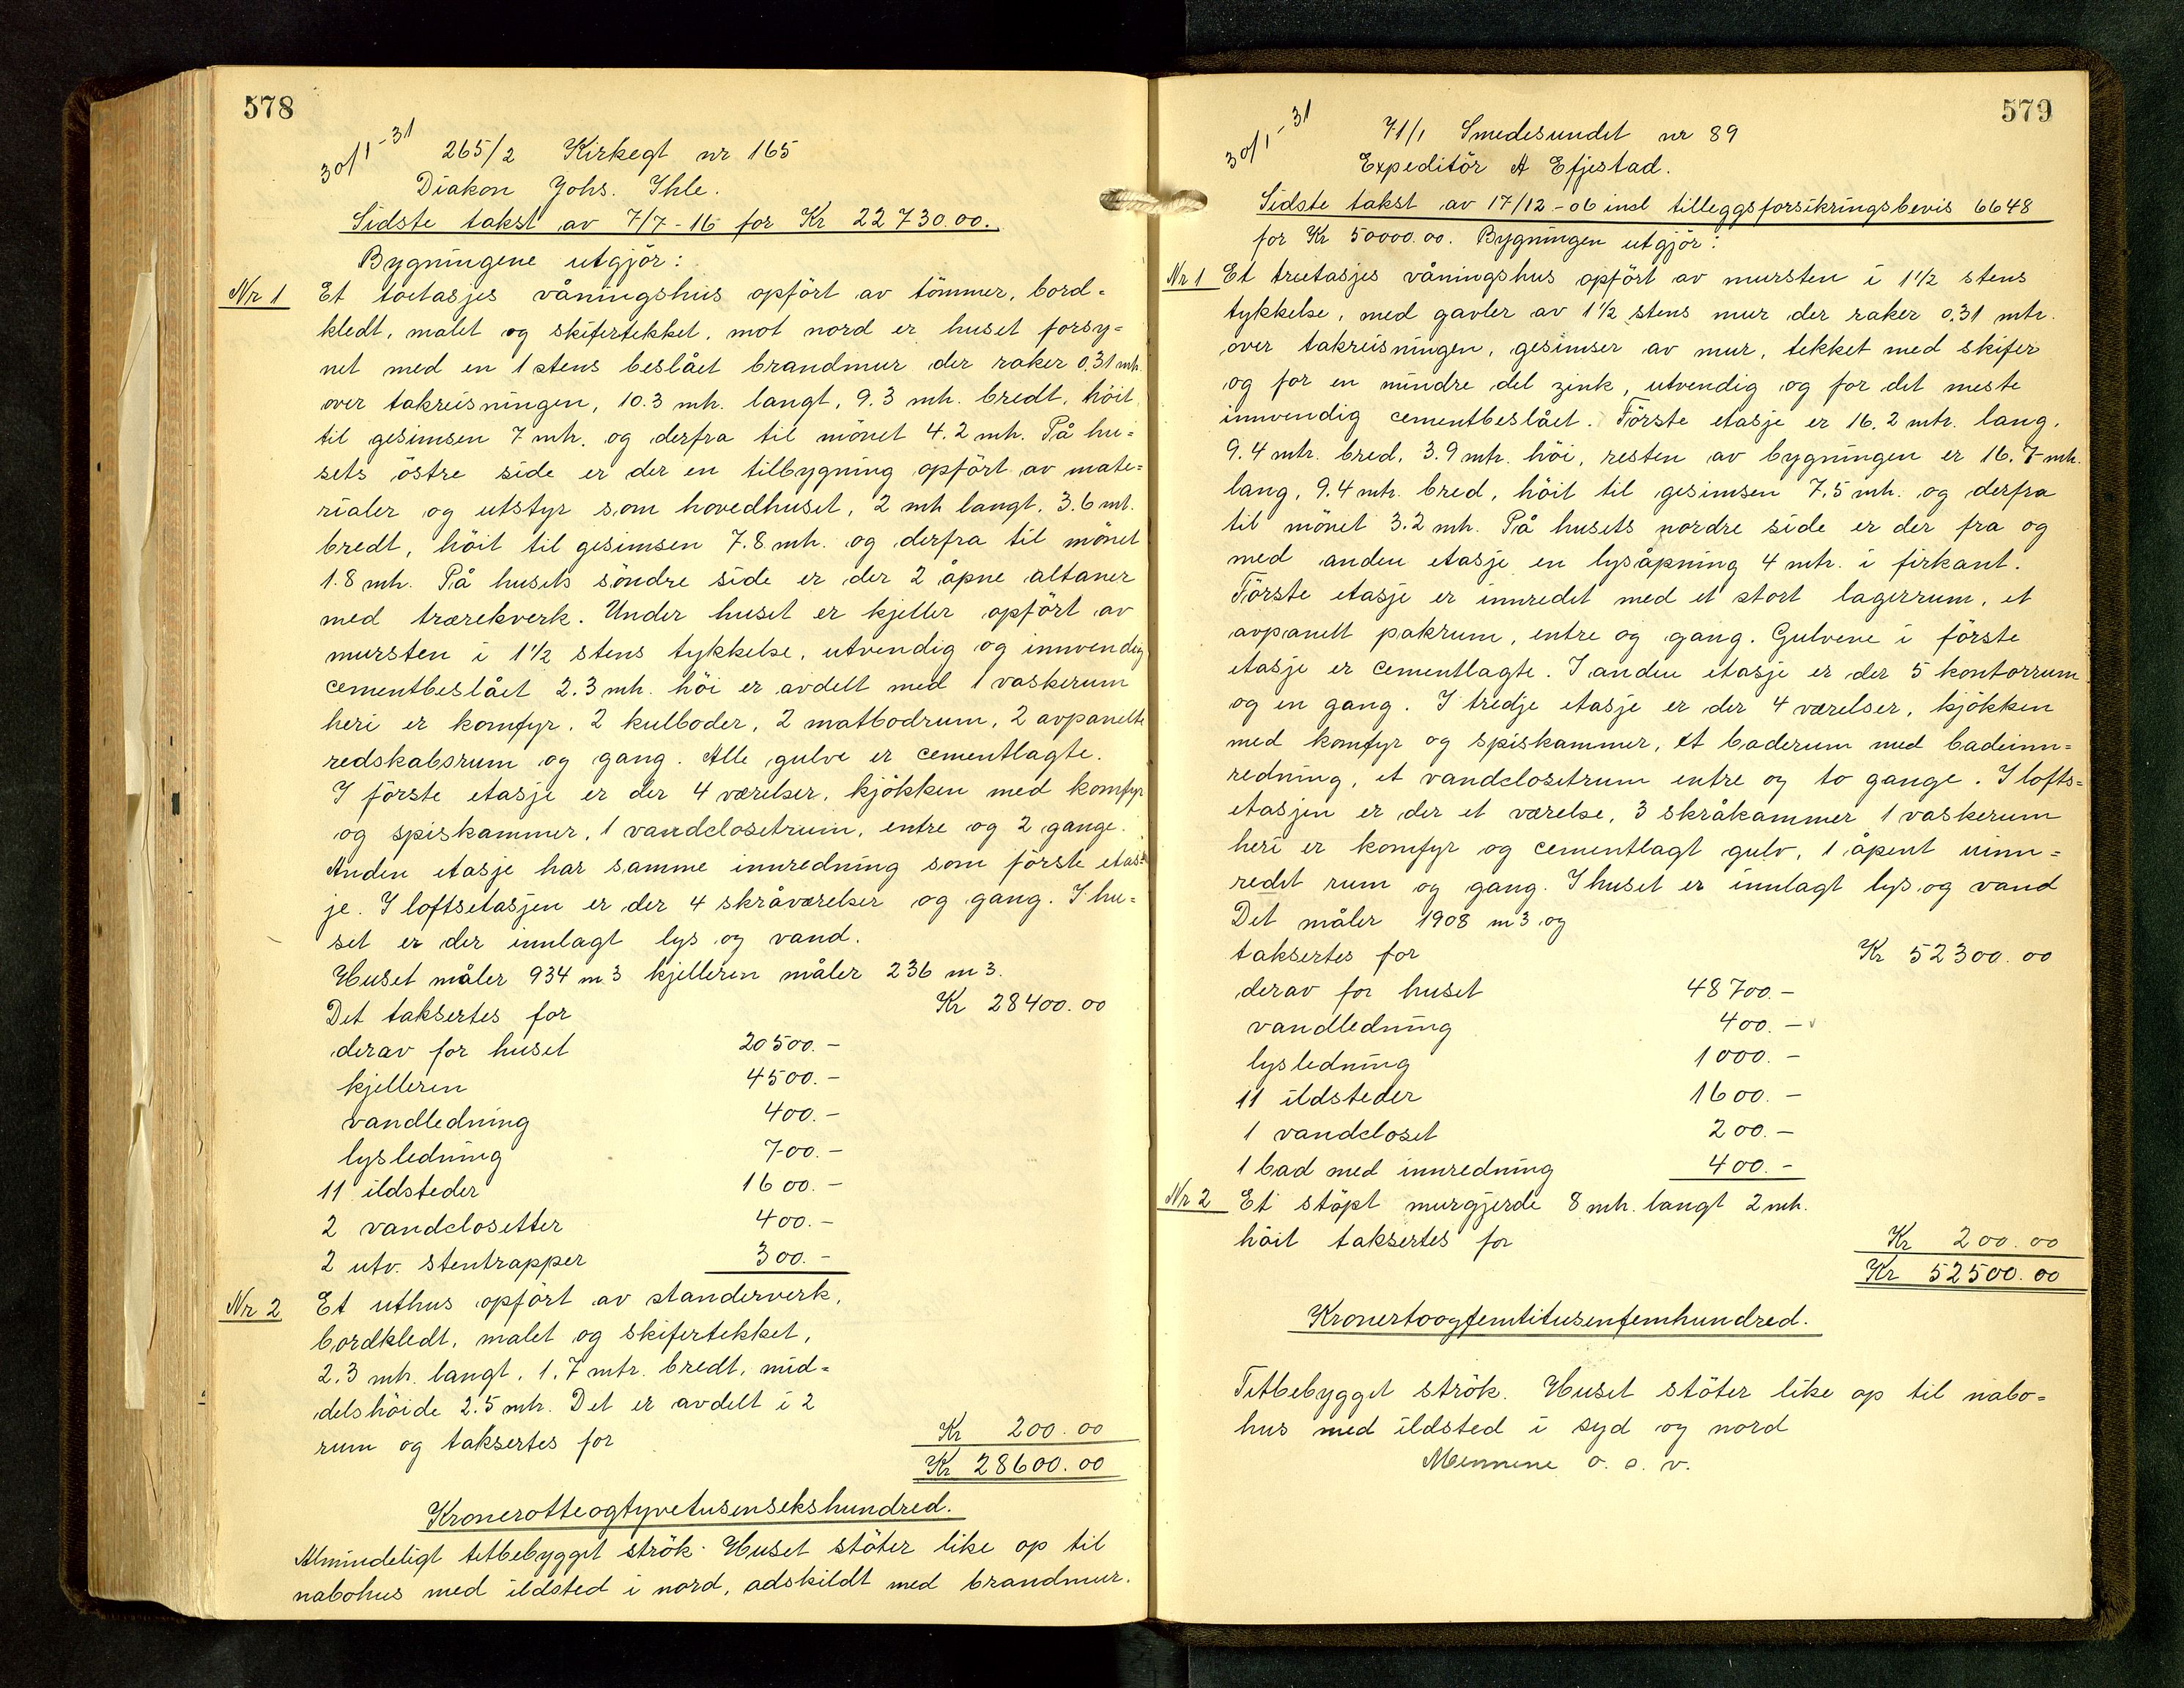 578
30/1-31
265/2 Kirkegt nr 165
Diakon Johs. Ihle.
Sidste takst av 7/7-16 for Kr 22730.00.
Bygningene utgjör:
Nr 1 Et toetasjes våningshus opfört av tömmer, bord=
kledt, malet og skifertekket, mot nord er huset forsy=
net med en 1 stens beslået brandmur der raker 0.31 mtr.
over takreisningen, 10.3 mtr. langt, 9.3 mtr. bredt, höit
til gesimsen 7 mtr. og derfra til mönet 4.2 mtr. På hu=
sets östre side er der en tilbygning opfört av mate=
rialer og utstyr som hovedhuset, 2 mtr langt, 3.6 mt.
bredt, höit til gesimsen 7.8 mtr. og derfra til mönet
1.8 mtr. På husets söndre side er der 2 åpne altaner
med trærekverk. Under huset er kjeller opfört av
mursten i 1½ stens tykkelse, utvendig og innvendig
cementbeslået 2.3 mtr. höi er avdelt med 1 vaskerum
heri er komfyr, 2 kulboder, 2 matbodrum, 2 avpanelte
redskabsrum og gang. Alle gulve er cementlagte.
I förste etasje er der 4 værelser, kjökken med komfyr
og spiskammer, 1 vandclosetrum, entre og 2 gange.
Anden etasje har samme innredning som förste etas=
je. I loftsetasjen er der 4 skråværelser og gang. I hu=
set er der innlagt lys og vand.
Huset måler 934 m3 kjelleren måler 236 m3.
Det taksertes for Kr 28400.00
derav for huset 20500.-
kjelleren 4500.-
vandledning 400.-
lysledning 700.-
11 ildsteder 1600.-
2 vandclosetter 400.-
2 utv. stentrapper 300.-
Nr 2 Et uthus opfört av standerverk,
bordkledt, malet og skifertekket,
2.3 mtr. langt, 1.7 mtr. bredt, mid=
delshöide 2.5 mtr. Det er avdelt i 2
rum og taksertes for Kr 200.00
Kr 28600.00
Kronerotteogtyvetusensekshundred.
Almindeligt tetbebygget strök. Huset stöter like op til
nabohus med ildsted i nord, adskildt med brandmur.
579
30/1-31
71/1 Smedesundet nr 89
Expeditör A Efjestad.
Sidste takst av 17/12-06 incl tilleggsforsikringsbevis 6648
for Kr 50000.00. Bygningen utgjör:
Nr 1 Et treetasjes våningshus opfört av mursten i 1½ stens
tykkelse, med gavler av 1½ stens mur der raker 0.31 mtr.
over takreisningen, gesimser av mur, tekket med skifer
og for en mindre del zink, utvendig og for det meste
innvendig cementbeslået. Förste etasje er 16.2 mtr. lang,
9.4 mtr. bred, 3.9 mtr. höi, resten av bygningen er 16.7 mtr.
lang, 9.4 mtr. bred, höit til gesimsen 7.5 mtr. og derfra
til mönet 3.2 mtr. På husets nordre side er der fra og
med anden etasje en lysåpning 4 mtr. i firkant.
Förste etasje er innredet med et stort lagerrum, et
avpanelt pakrum, entre og gang. Gulvene i förste
etasje er cementlagte. I anden etasje er der 5 kontorrum
og en gang. I tredje etasje er der 4 værelser, kjökken
med komfyr og spiskammer, et baderum med badeinn=
redning, et vandclosetrum entre og to gange. I lofts=
etasjen er der et værelse, 3 skråkammer 1 vaskerum
heri er komfyr og cementlagt gulv, 1 åpent uinn=
redet rum og gang. I huset er innlagt lys og vand
Det måler 1908 m3 og
taksertes for Kr 52300.00
derav for huset 48700.-
vandledning 400.-
lysledning 1000.-
11 ildsteder 1600.-
1 vandcloset 200.-
1 bad med innredning 400.-
Nr 2 Et stöpt murgjerde 8 mtr. langt 2 mtr.
höit taksertes for Kr 200.00
Kr 52500.00
Kronertoogfemtitusenfemhundred.
Tetbebygget strök. Huset stöter like op til nabo=
hus med ildsted i syd og nord
Mennene o. s. v.